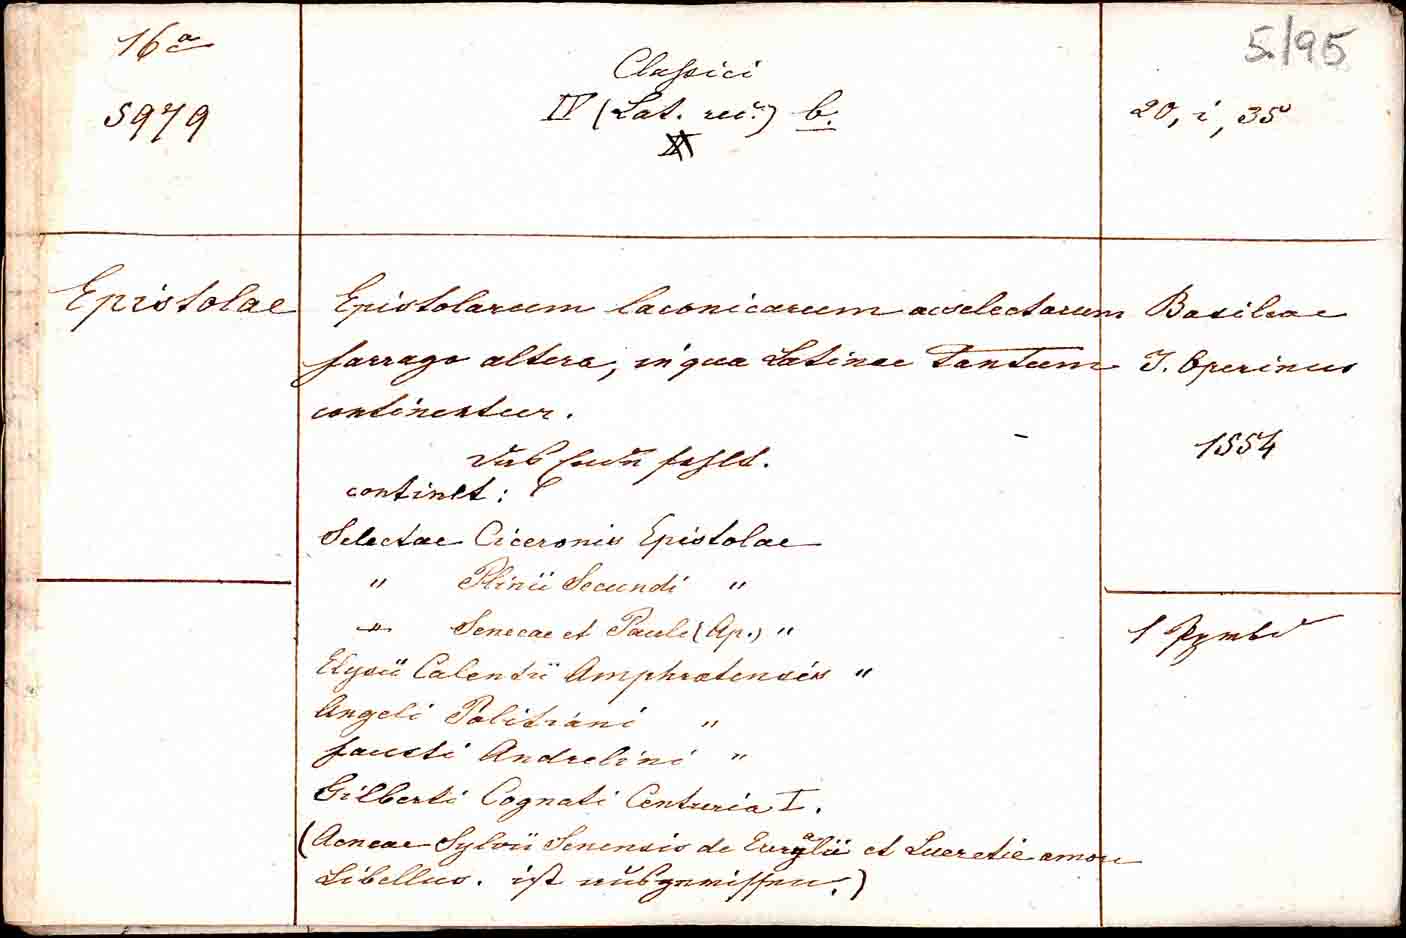 16ª
5979
Classici
IV (Lat. rec.) b.
5/95
20, i, 35
Epistolae
Epistolarum laconicarum ac selectarum
farrago altera, in qua Latinae tantum
continentur.
Basileae
J. Oporinus
1554
Das Ende fehlt.
continet:
Selectae Ciceronis Epistolae
" Plinii Secundi "
" Senecae et Pauli (Ap.) "
Elysii Calentii Amphratensis "
Angeli Politiani "
Fausti Andrelini "
Gilberti Cognati Centuria I.
(Aeneae Sylvii Senensis de Euryalii et Lucretie amore
Libellus. ist ausgerissen.)
1 Pgmbd